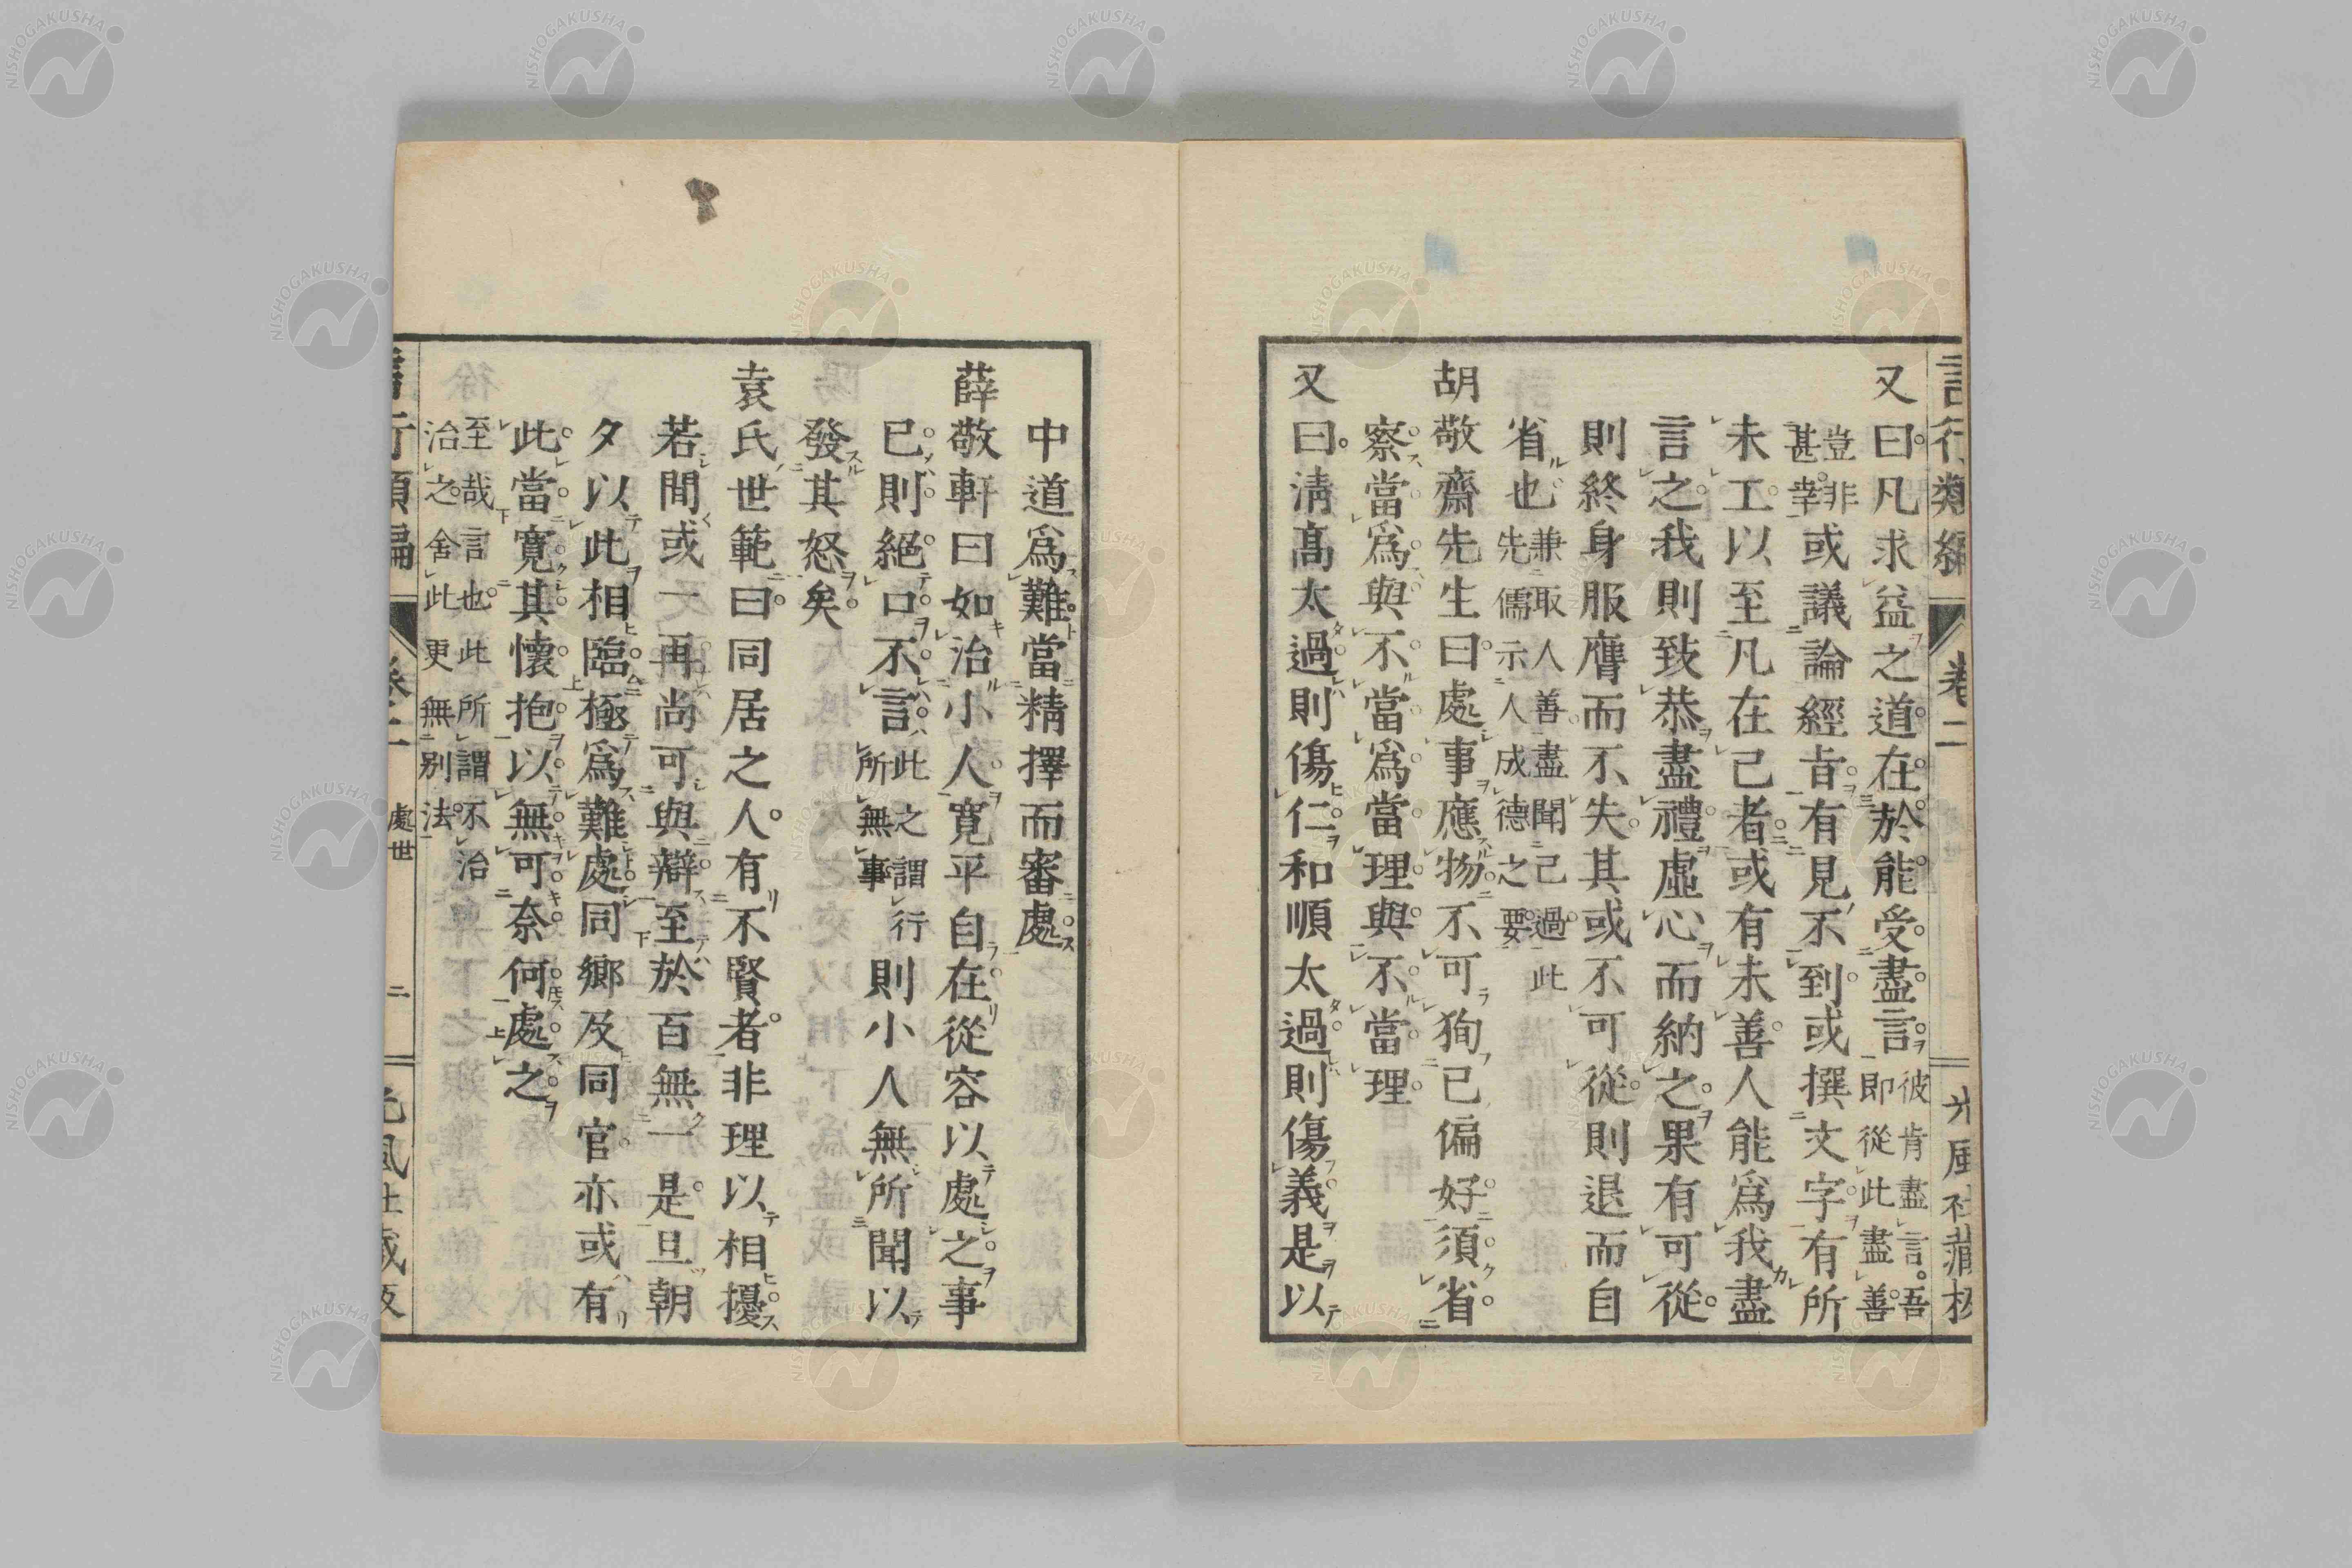 言行類編 卷二 光風社藏板
又曰凡求益之道在於能受盡言彼肯盡言吾即從此盡善
豈非甚幸或議論經旨有見不到或撰文字有所
未工以至凡在己者或有未善人能爲我盡
言之我則致恭盡禮虛心而納之果有可從
則終身服膺而不失其或不可從則退而自
省也兼取人善盡聞己過此先儒示人成德之要
胡敬齋先生曰處事應物不可狥己偏好須省
察當爲與不當爲當理與不當理
又曰淸高太過則傷仁和順太過則傷義是以
中道爲難當精擇而審處
薛敬軒曰如治小人寬平自在從容以處之事
已則絕口不言此之謂行所無事則小人無所聞以
發其怒矣
袁氏世範曰同居之人有不賢者非理以相擾
若間或一再尚可與辯至於百無一是旦朝
夕以此相臨極爲難處同鄉及同官亦或有
此當寬其懷抱以無可奈何處之
至哉言也此所謂不治治之舍此更無別法
言行類編 卷二 處世 二 光風社藏板
NISHOGAKUSHA